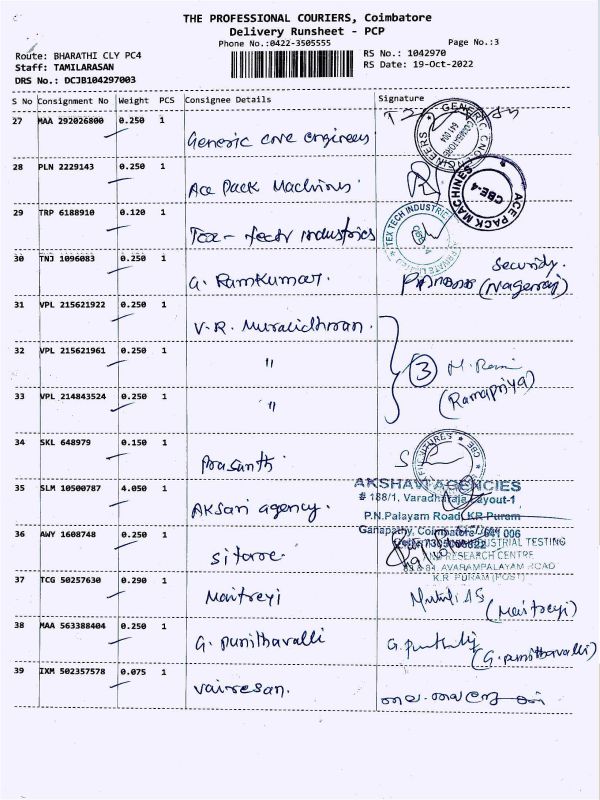 THE PROFESSIONAL COURIERS, Coimbatore
Delivery Runsheet - PCP
Phone No.:0422-3505555
Page No.:3
Route: BHARATHI CLY PC4
RS No.: 1042970
Staff: TAMILARASAN
RS Date: 19-Oct-2022
DRS No.: DCJB104297003
S No Consignment No Weight PCS Consignee Details Signature
27 MAA 292026800 0.250 1
Generic cnc engineers
28 PLN 2229143 0.250 1
Ace Pack Machines
ACE PACK MACHINES
CBE-4
29 TRP 6188910 0.120 1
Tex - Tech industries
TEX TECH INDUSTRIES
30 TNJ 1096083 0.250 1
G. Ramkumar.
Security.
(Nagaraj)
31 VPL 215621922 0.250 1
V.R. Muralidharan.
32 VPL 215621961 0.250 1
"
3 M. Rami
(Ramapriya)
33 VPL 214843524 0.250 1
"
34 SKL 648979 0.150 1
Prasanth
35 SLM 10500787 4.050 1
AKsari agency.
AKSHAVI AGENCIES
# 188/1, Varadharaja Layout-1
P.N.Palayam Road, KR Puram
Ganapathy, Coimbatore - 641 006
36 AWY 1608748 0.250 1
sitarc.
INDUSTRIAL TESTING
AND RESEARCH CENTRE
83 & 84, AVARAMPALAYAM ROAD
K.R. PURAM (POST)
37 TCG 50257630 0.290 1
Maitreyi
(Maitreyi)
38 MAA 563388404 0.250 1
G. punithavalli
(G. punithavalli)
39 IXM 502357578 0.075 1
Vairesan.